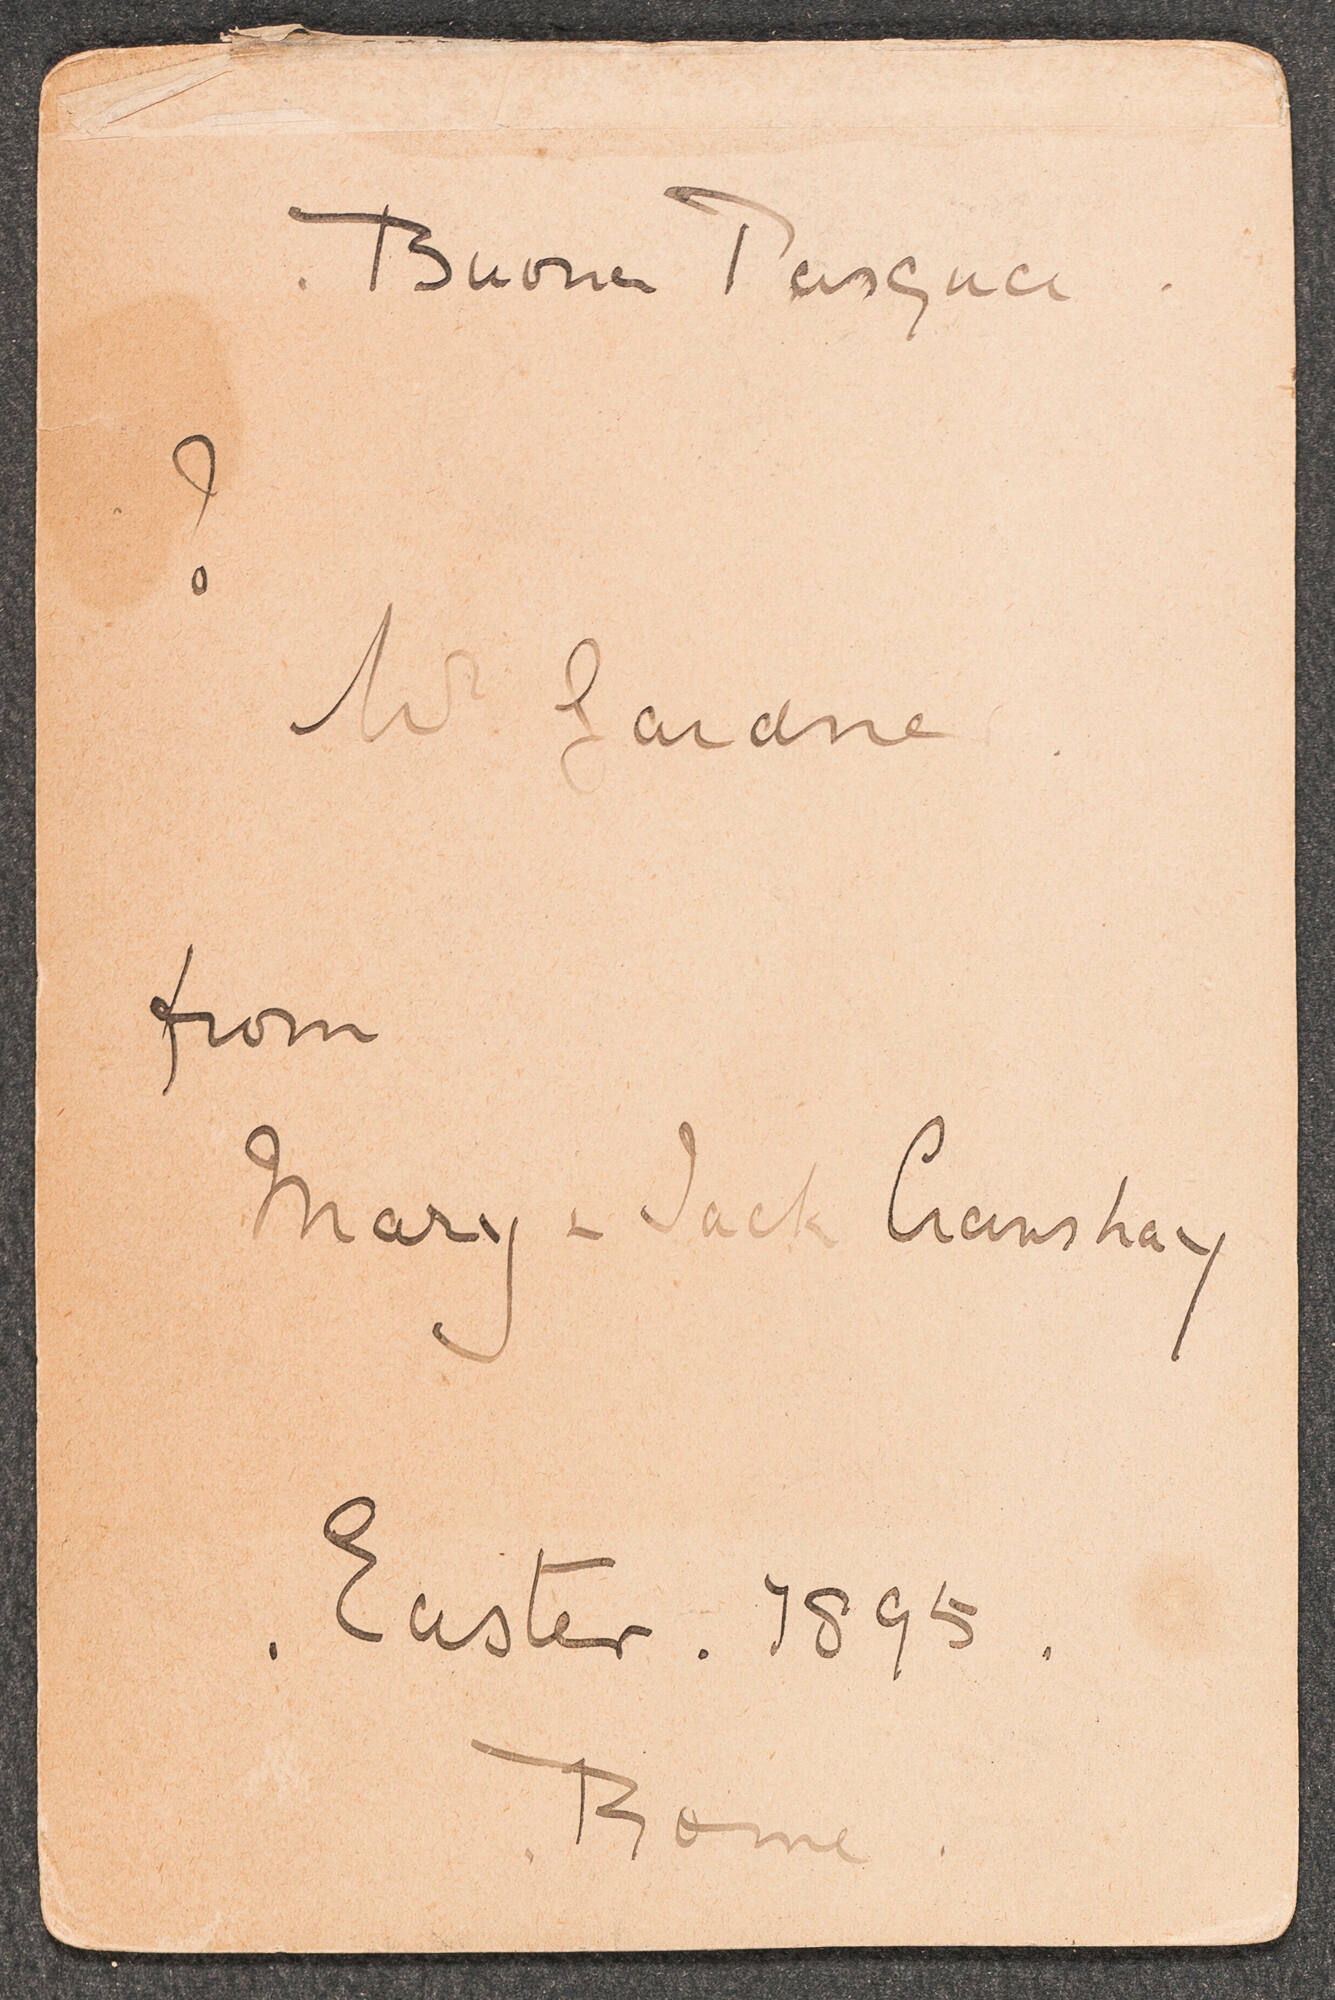 . Buona Pasqua .
?
Mr Gardner .
from
Mary & Jack Crawshay
. Easter . 1895 .
. Rome .